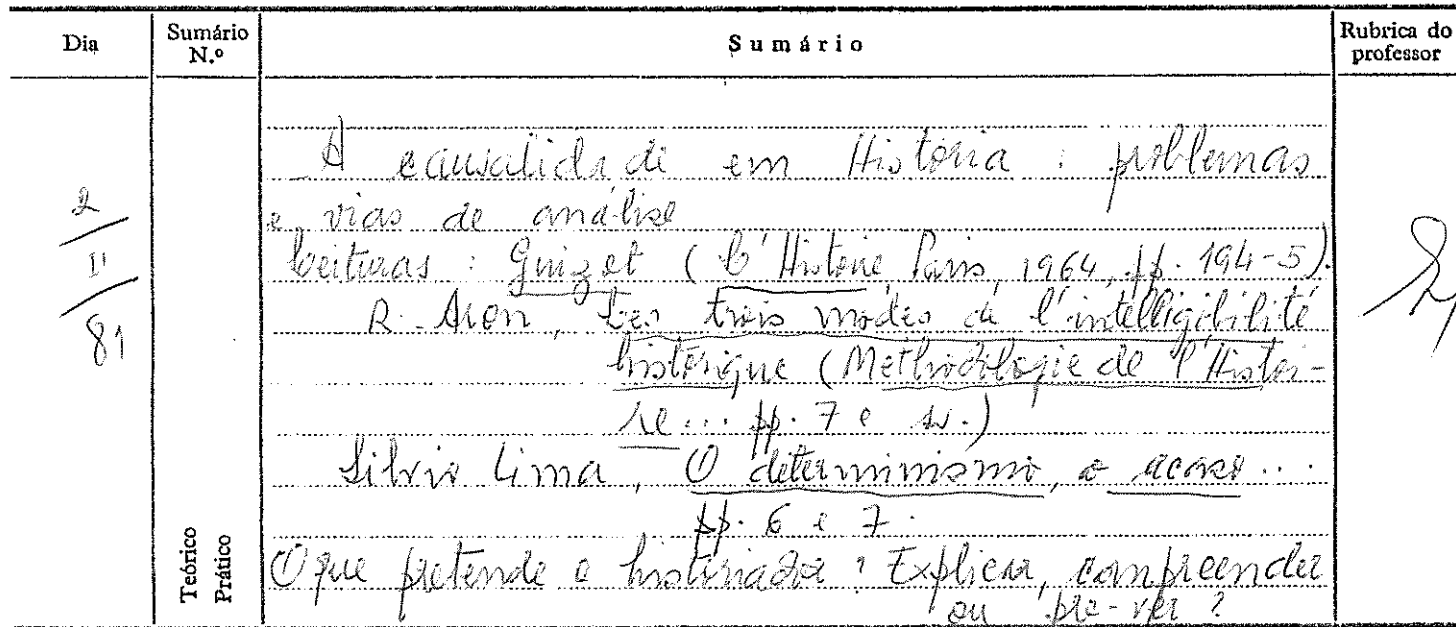 Dia
Sumário N.º
Sumário
Rubrica do professor
2
II
81
A causalidade em História : problemas
e vias de análise
Leituras : Guizot (L'Histoire, Paris, 1964, pp. 194-5).
R. Aron, Les trois modes de l'intelligibilité
historique (Methodologie de l'Histoi-
re... pp. 7 e ss.)
Silvio Lima, O determinismo, o acaso...
pp. 6 e 7.
O que pretende o historiador : Explicar, compreender
ou pre-ver ?
Teórico
Prático